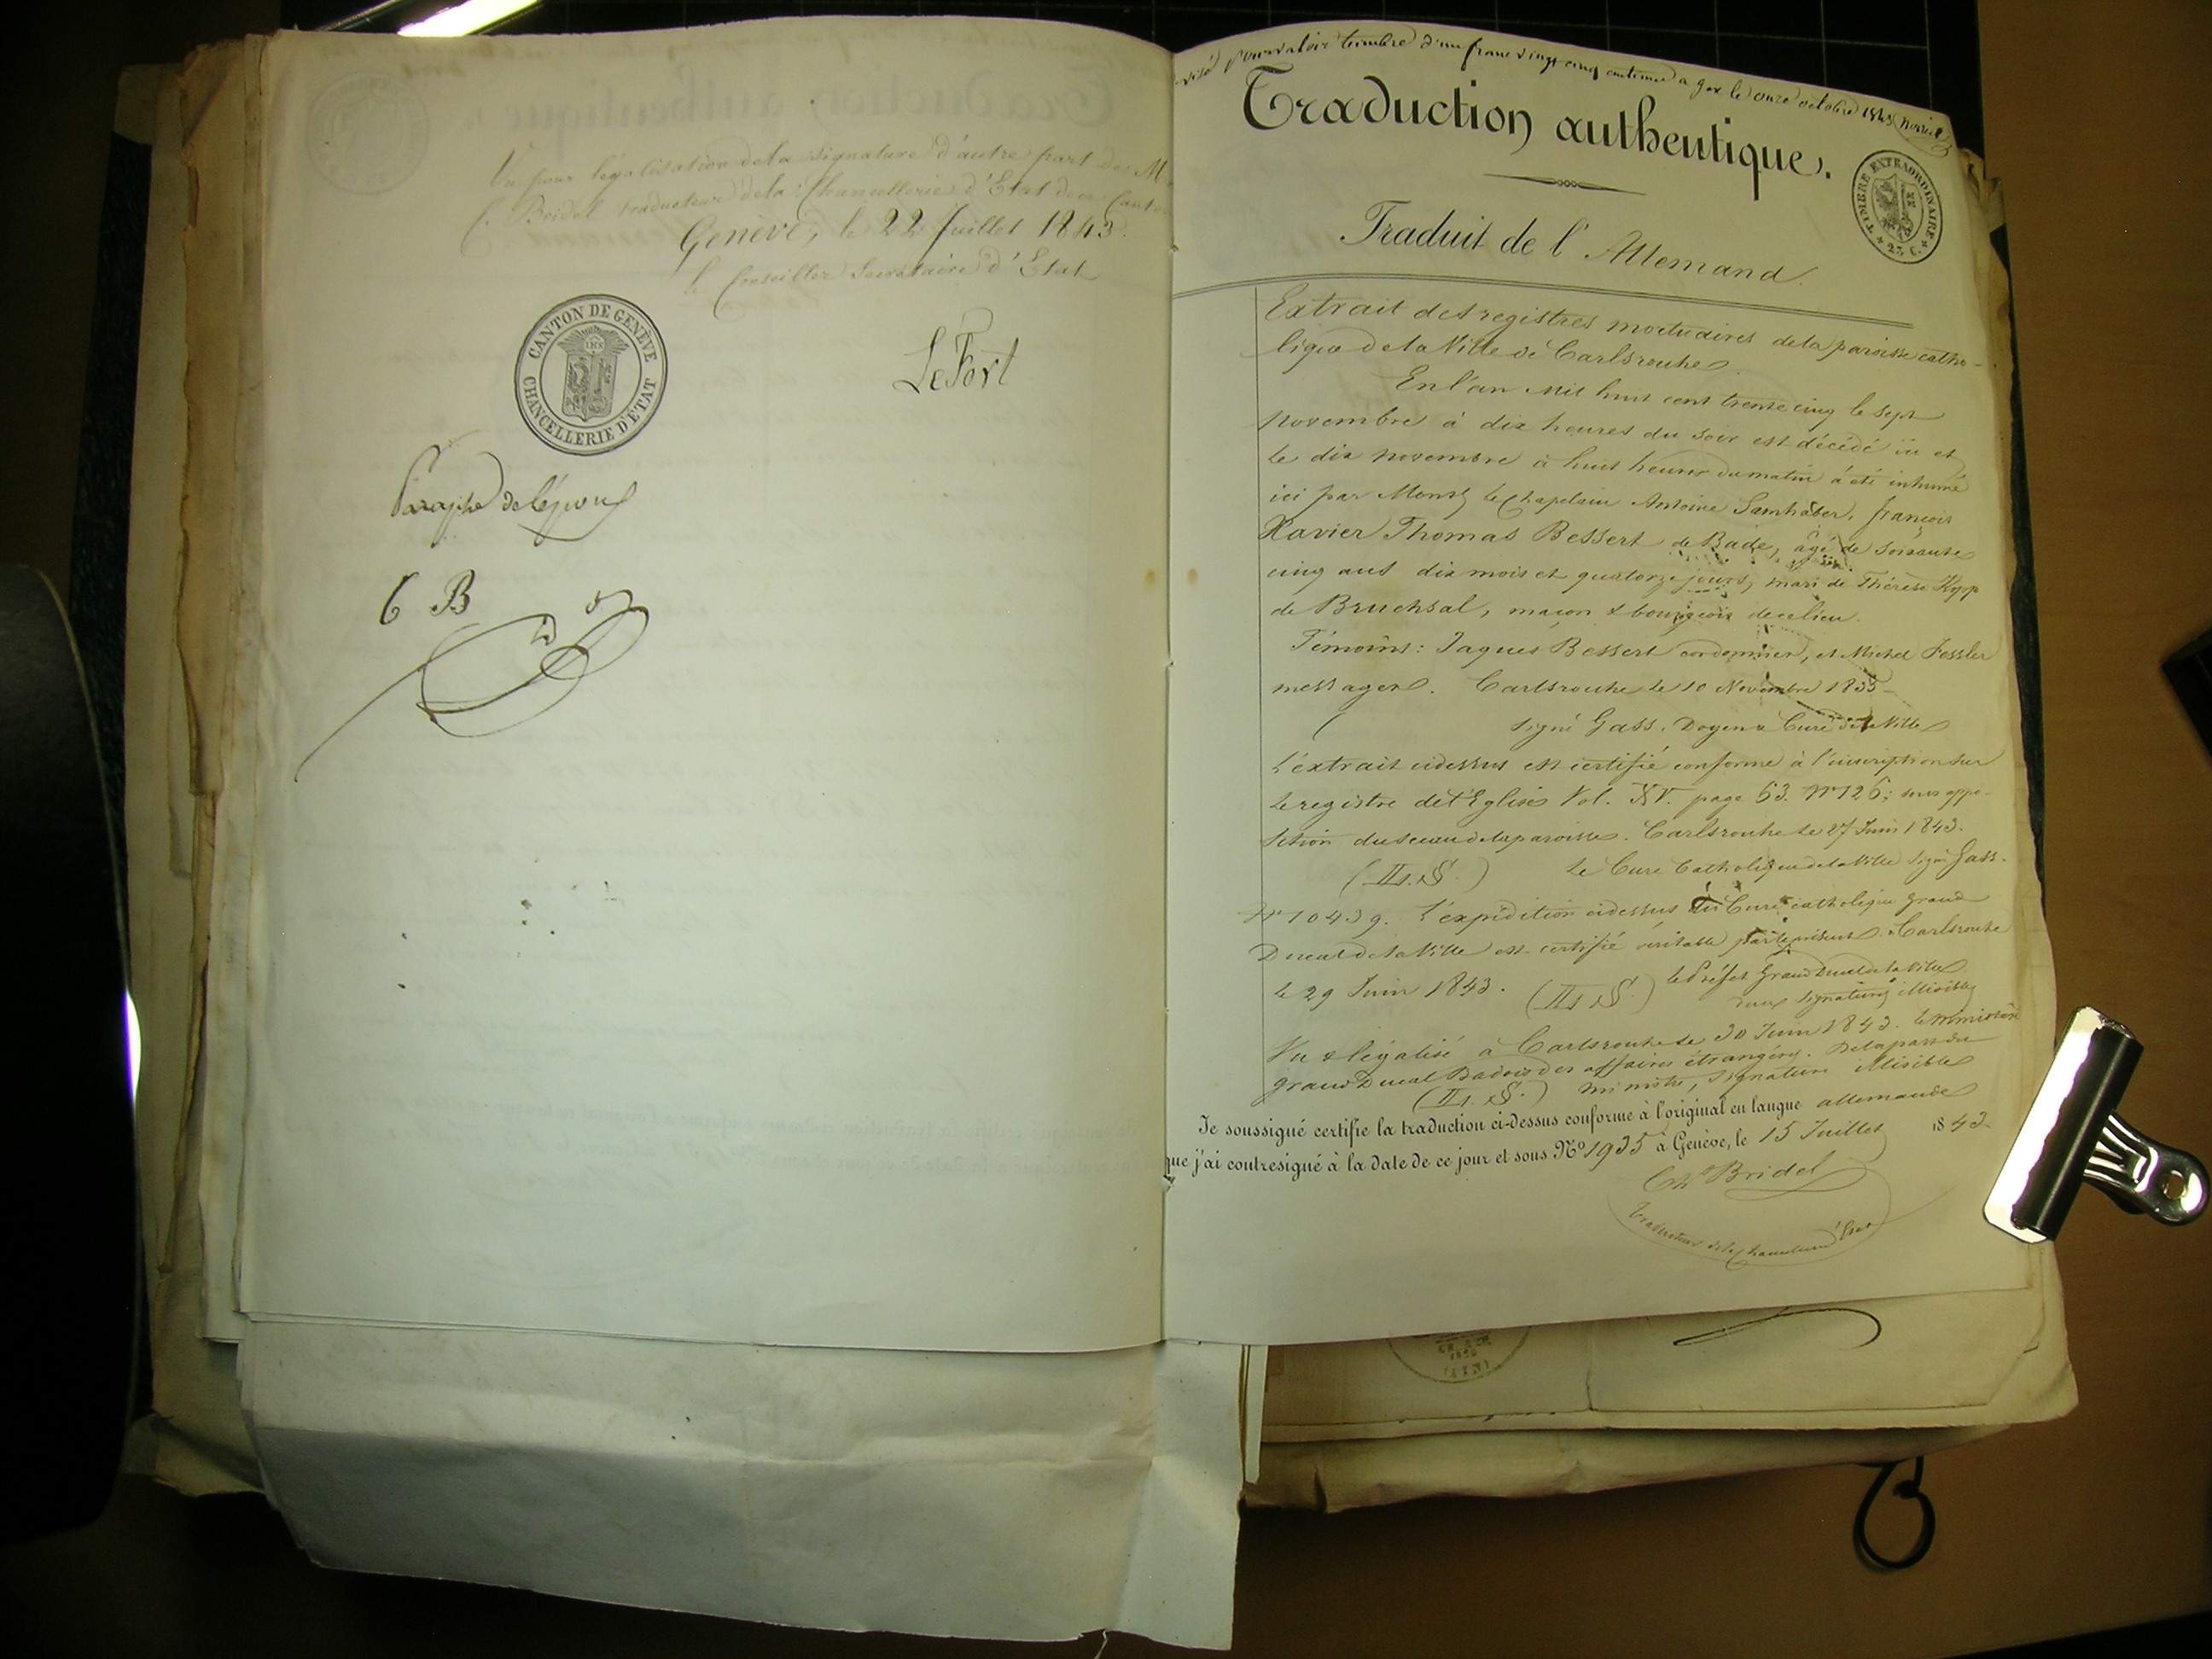 Vu pour légalisation de la signature d'autre part de M.
C. Bridel traducteur de la Chancellerie d'Etat de ce Canton
Genève, le 22 Juillet 1843.
le Conseiller Secrétaire d'Etat
CANTON DE GENÈVE
CHANCELLERIE D'ÉTAT
LeFort
Paraphe de l'époux
6 B
visé pour valoir timbre d'un franc vingt cinq centimes a gex le onze octobre 1843
Traduction authentique.
TIMBRE EXTRAORDINAIRE
25 C.
Traduit de l'Allemand.
Extrait des registres mortuaires de la paroisse catho-
lique de la Ville de Carlsrouhe.
En l'an mil huit cent trente cinq le sept
novembre à dix heures du soir est décédé ici et
le dix novembre à huit heures du matin a été inhumé
ici par Monsr le Chapelain Antoine Samhaber, françois
Xavier Thomas Bessert de Bade, âgé de soixante
cinq ans dix mois et quatorze jours, mari de Thérèse Kopp
de Bruchsal, maçon & bourgeois de ce lieu.
Témoins: Jaques Bessert cordonnier, et Michel Fessler
messager. Carlsrouhe le 10 Novembre 1835
signé Gass. Doyen & Curé de la Ville
L'extrait cidessus est certifié conforme à l'inscription sur
le registre de l'Eglise Vol. XV. page 63. No 126; sous appo-
sition du sceau de la paroisse. Carlsrouhe le 27 Juin 1843.
(L.S.) Le Curé Catholique de la Ville signé Gass.
No 10439. L'expédition cidessus du Curé catholique grand
Ducal de la Ville est certifié véritable par le présent. Carlsrouhe
le 29 Juin 1843. (L.S.) le Préfet Grand Ducal de la Ville
deux signatures illisibles
Vu & légalisé à Carlsrouhe le 30 Juin 1843. le ministère
grand Ducal Badois des affaires étrangères. De la part du
(L.S.) ministre, signature illisible
Je soussigné certifie la traduction ci-dessus conforme à l'original en langue allemande
que j'ai contresigné à la date de ce jour et sous No 1935 à Genève, le 15 Juillet 1843.
Ch. Bridel
traducteur de la Chancellerie d'Etat